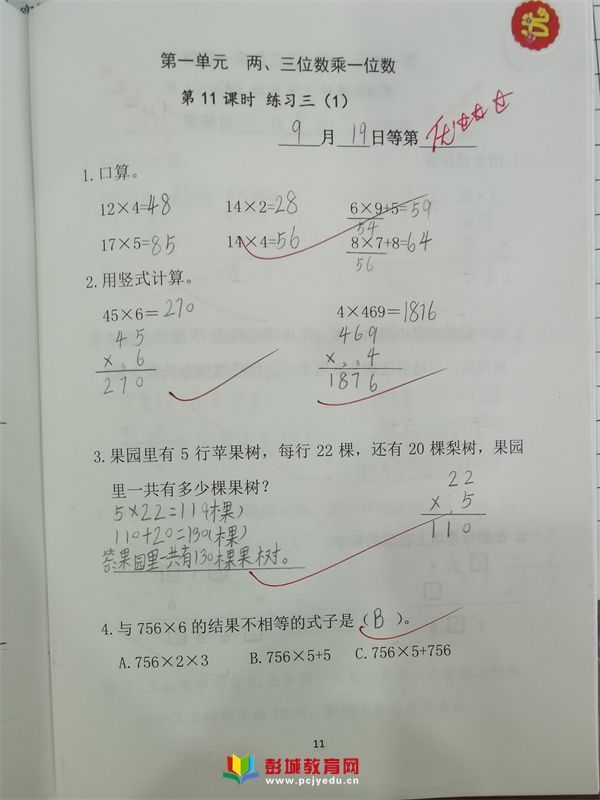 优
第一单元 两、三位数乘一位数
第 11 课时 练习三（1）
9 月 19 日等第 优☆☆☆
1.口算。
12×4=48 14×2=28 6×9+5=59
54
17×5=85 14×4=56 8×7+8=64
56
2.用竖式计算。
45×6=270 4×469=1876
45 469
×36 ×234
270 1876
3.果园里有 5 行苹果树，每行 22 棵，还有 20 棵梨树，果园
里一共有多少棵果树？
22
×15
110
5×22=110(棵)
110+20=130(棵)
答:果园里一共有130棵果树。
4.与 756×6 的结果不相等的式子是（B）。
A.756×2×3 B.756×5+5 C.756×5+756
11
彭城教育网
www.pcjyedu.com